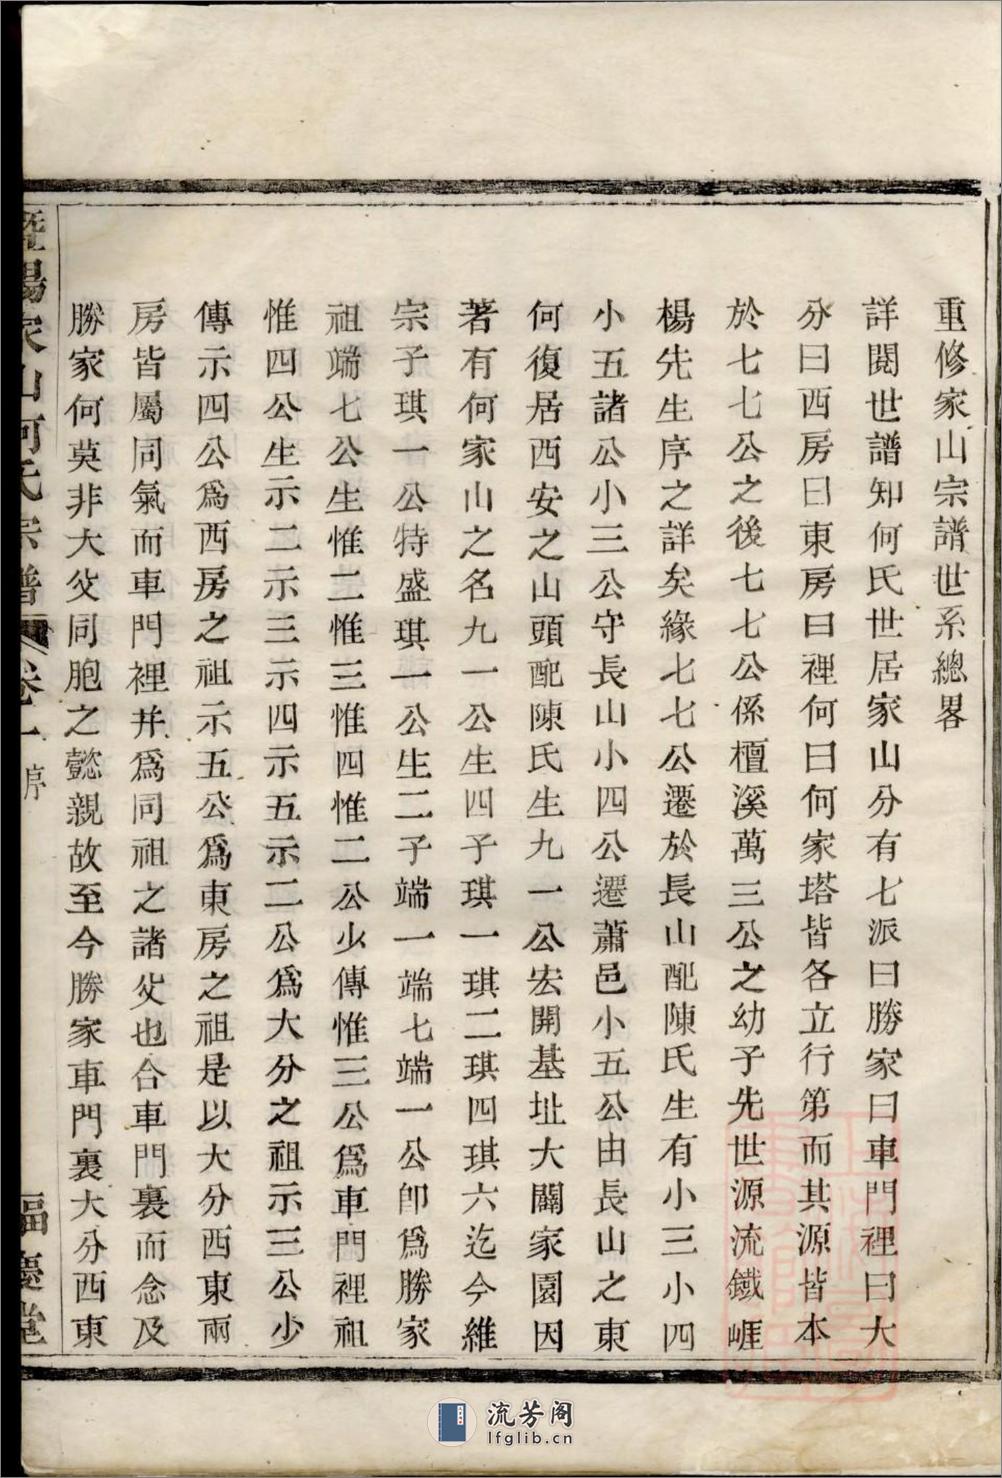 重修家山宗譜世系總畧
詳閱世譜知何氏世居家山分有七派曰勝家曰車門裡曰大
分曰西房曰東房曰裡何曰何家塔皆各立行第而其源皆本
於七七公之後七七公係檀溪萬三公之幼子先世源流鐵崕
楊先生序之詳矣緣七七公遷於長山配陳氏生有小三小四
小五諸公小三公守長山小四公遷蕭邑小五公由長山之東
何復居西安之山頭配陳氏生九一公宏開基址大闢家園因
著有何家山之名九一公生四子琪一琪二琪四琪六迄今維
宗子琪一公特盛琪一公生二子端一端七端一公卽爲勝家
祖端七公生惟二惟三惟四惟二公少傳惟三公爲車門裡祖
惟四公生示二示三示四示五示二公爲大分之祖示三公少
傳示四公爲西房之祖示五公爲東房之祖是以大分西東兩
房皆屬同氣而車門裡并爲同祖之諸父也合車門裏而念及
勝家何莫非大父同胞之懿親故至今勝家車門裏大分西東
暨陽家山何氏宗譜 卷一 序 福慶堂
流芳阁
lfglib.cn